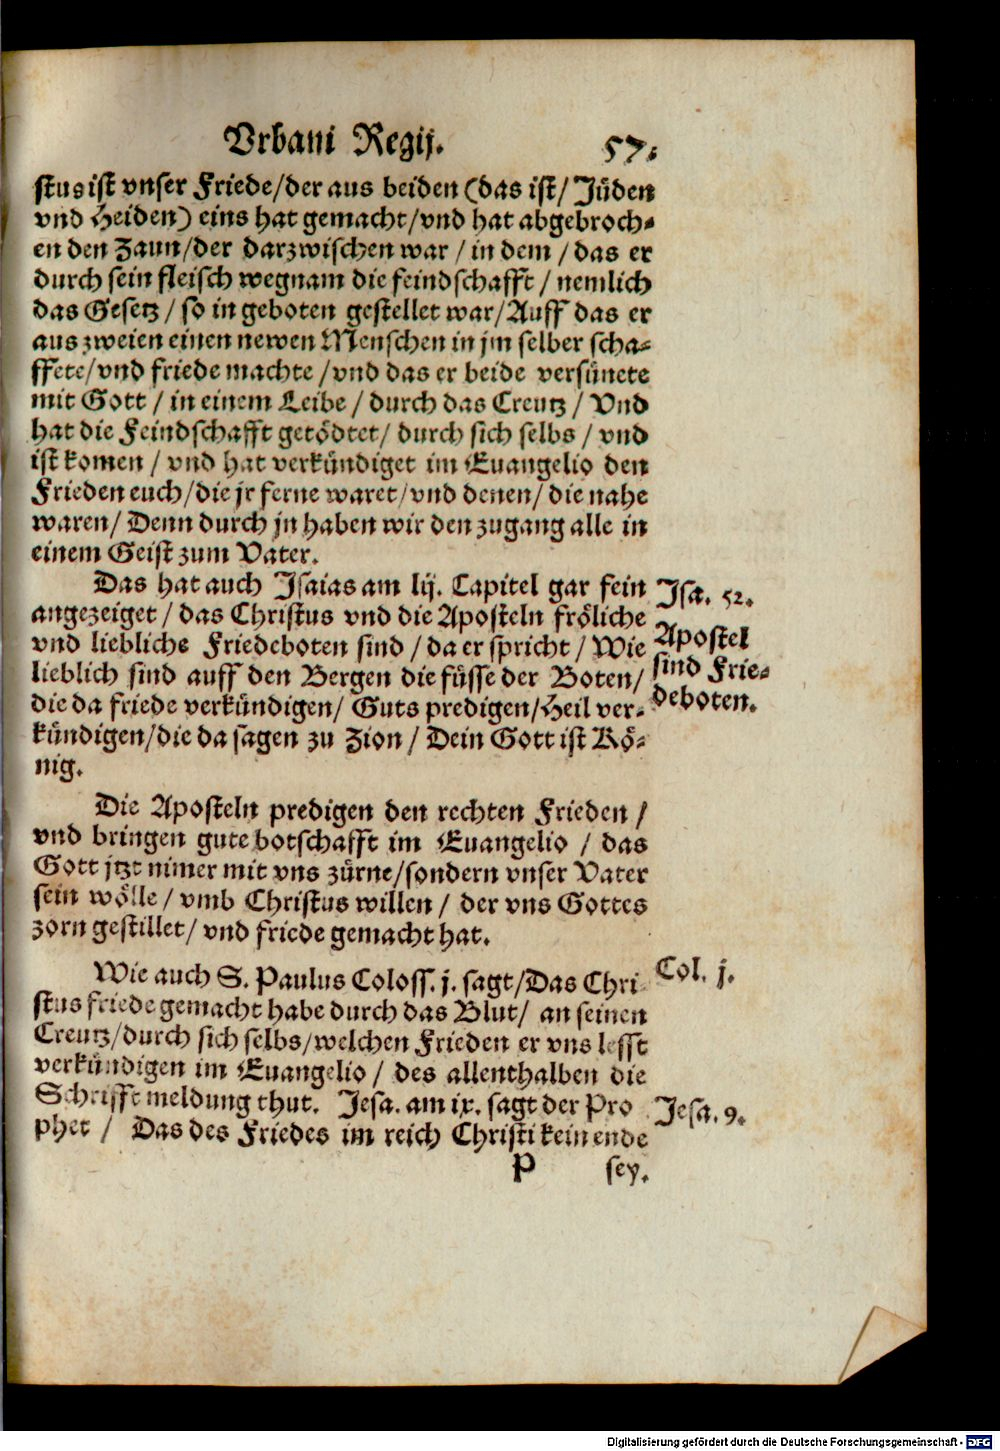 Vrbani Regij. 57.
stus ist vnser Friede/der aus beiden (das ist/ Jüden
vnd Heiden) eins hat gemacht/vnd hat abgebroch-
en den Zaun/der darzwischen war / in dem / das er
durch sein fleisch wegnam die feindschafft / nemlich
das Gesetz / so in geboten gestellet war/Auff das er
aus zweien einen newen Menschen in jm selber scha-
ffete/vnd friede machte /vnd das er beide versünete
mit Gott / in einem Leibe / durch das Creutz / Vnd
hat die Feindschafft getödtet/ durch sich selbs / vnd
ist komen / vnd hat verkündiget im Euangelio den
Frieden euch/die jr ferne waret/vnd denen/ die nahe
waren/ Denn durch jn haben wir den zugang alle in
einem Geist zum Vater.
Das hat auch Isaias am lij. Capitel gar fein
angezeiget / das Christus vnd die Aposteln fröliche
vnd liebliche Friedeboten sind / da er spricht / Wie
lieblich sind auff den Bergen die füsse der Boten/
die da friede verkündigen/ Guts predigen/Heil ver-
kündigen/die da sagen zu Zion / Dein Gott ist Kö-
nig.
Isa. 52.
Apostel
sind Frie-
deboten.
Die Aposteln predigen den rechten Frieden /
vnd bringen gute botschafft im Euangelio / das
Gott jtzt nimer mit vns zürne/sondern vnser Vater
sein wölle / vmb Christus willen / der vns Gottes
zorn gestillet/ vnd friede gemacht hat.
Wie auch S. Paulus Coloss. j. sagt/Das Chri-
stus friede gemacht habe durch das Blut/ an seinen
Creutz/durch sich selbs/welchen Frieden er vns lesst
verkündigen im Euangelio / des allenthalben die
Schrifft meldung thut. Jesa. am ix. sagt der Pro
phet / Das des Friedes im reich Christi kein ende
Col. j.
Jesa. 9.
P sey.
Digitalisierung gefördert durch die Deutsche Forschungsgemeinschaft - DFG